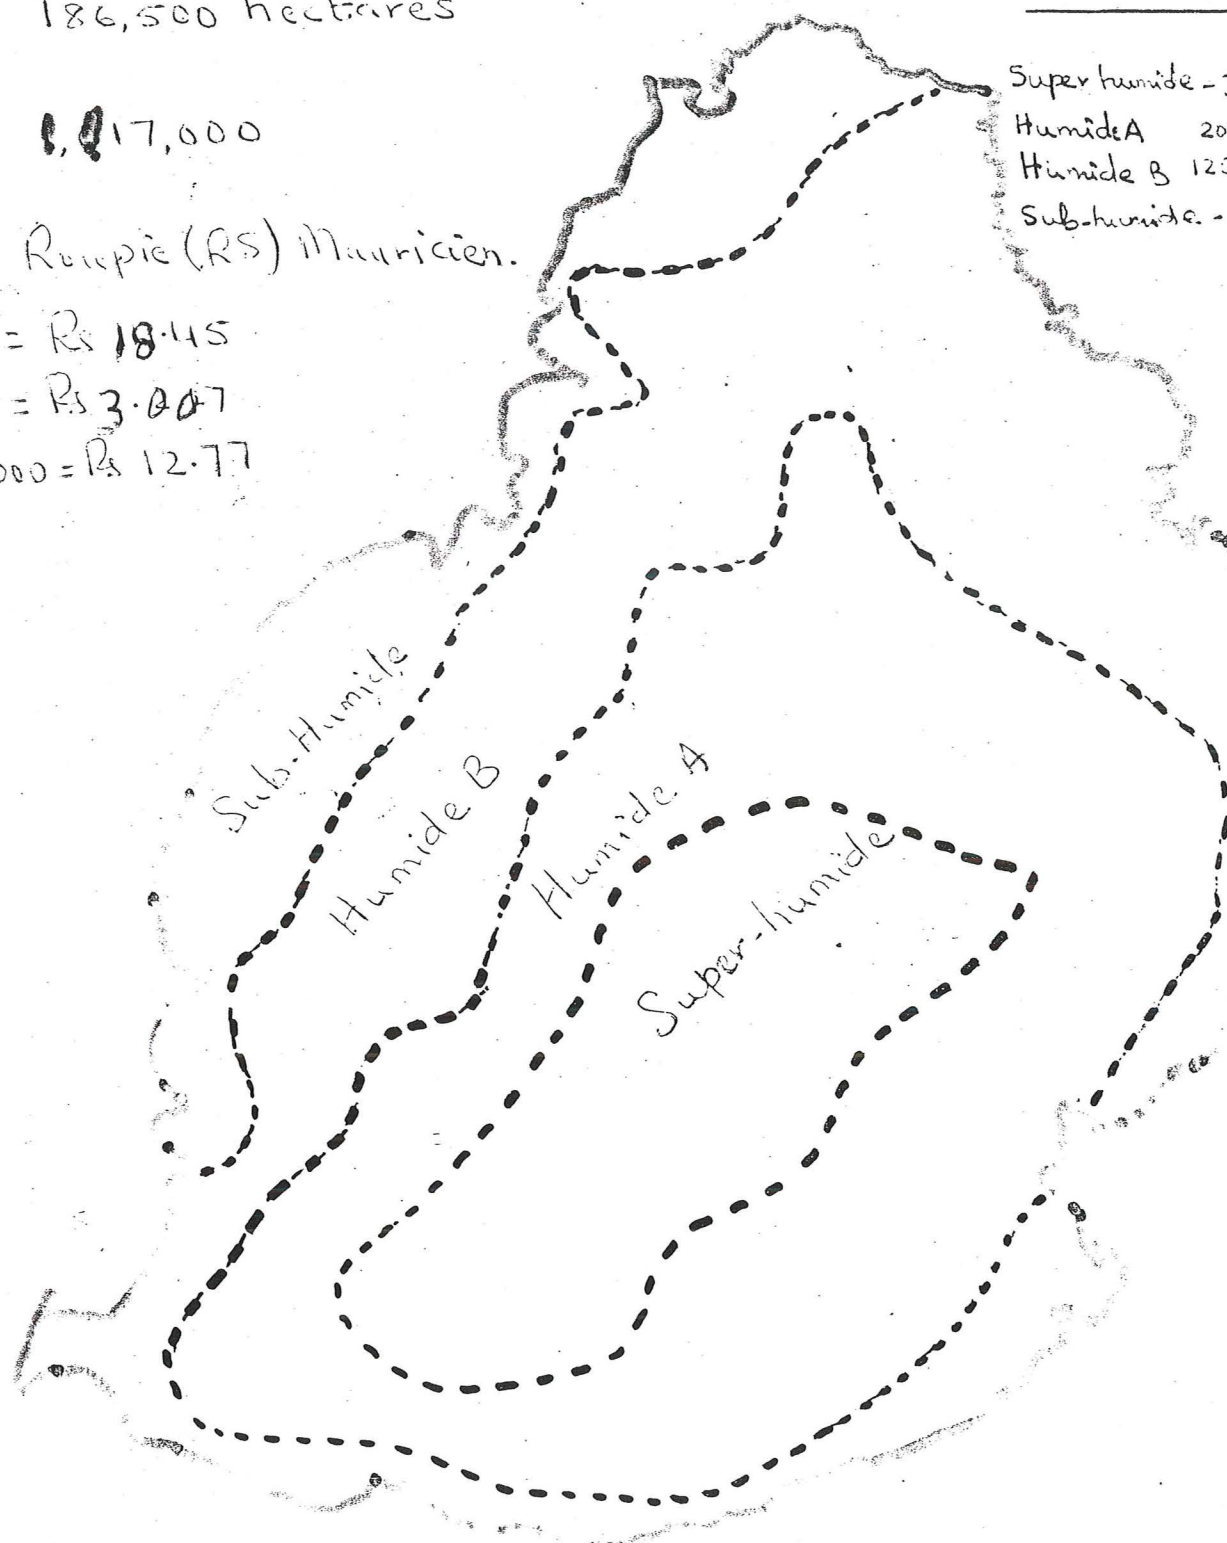 186,500 hectares
17,000
Roupie (RS) Mauricien.
= Rs 18.45
= Rs
000 = Rs 12.77
Super humide -
Humide A 20
Humide B 12
Sub-humide. -
Sub-Humide
Humide B
Humide A
Super-humide